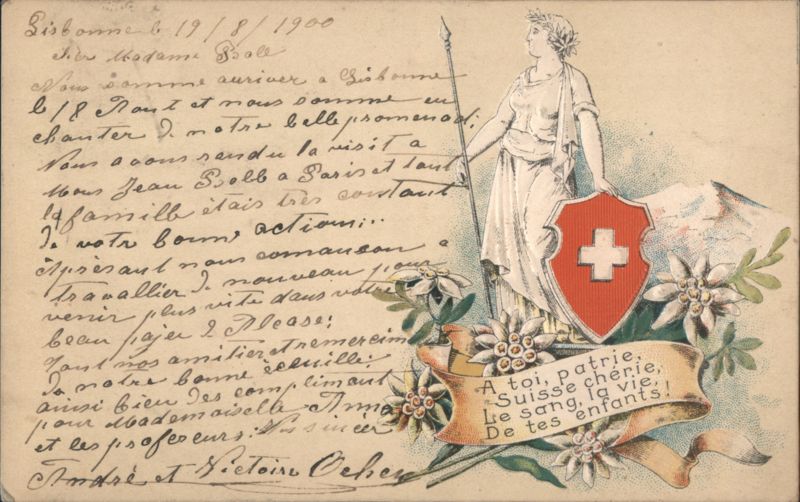 Lisbonne le 19/8/1900
Madame
Nous somme aurriver a Lisbonne
le 18 Aout et nous somme en
chanter de notre belle promenad:
Nous avons rendu la visit a
Mous Jean a Paris et tout
la famille étais très contant
de votre bonne action:..
Aprèsant nous comancon a
travallier de nouveau pour
venir plus vite dans votre
beau pajer d Alcase:
tout nos amitier et remercim
de notre bonne
ainsi bien des complimant
pour Mademoiselle Anna
et les profeseurs: Vos sincer
André et Victoire
A toi, patrie,
Suisse chérie,
Le sang, la vie,
De tes enfants!